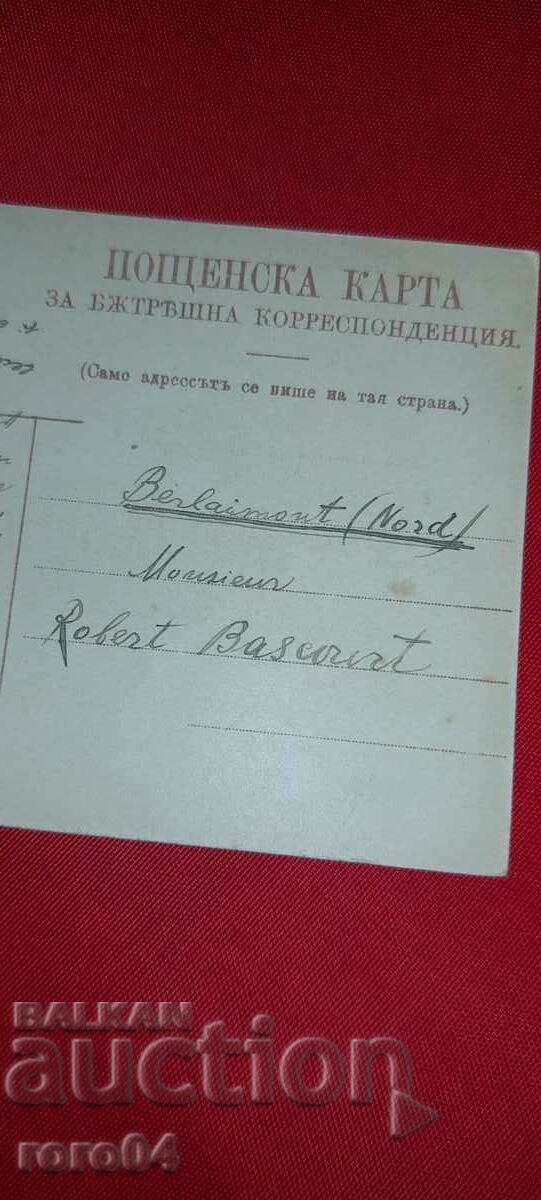 ПОЩЕНСКА КАРТА
ЗА ВѪТРѢШНА КОРРЕСПОНДЕНЦИЯ.
(Само адрессътъ се пише на тая страна.)
Berlaimont (Nord)
Monsieur
Robert Bascourt
BALKAN
auction
roro04